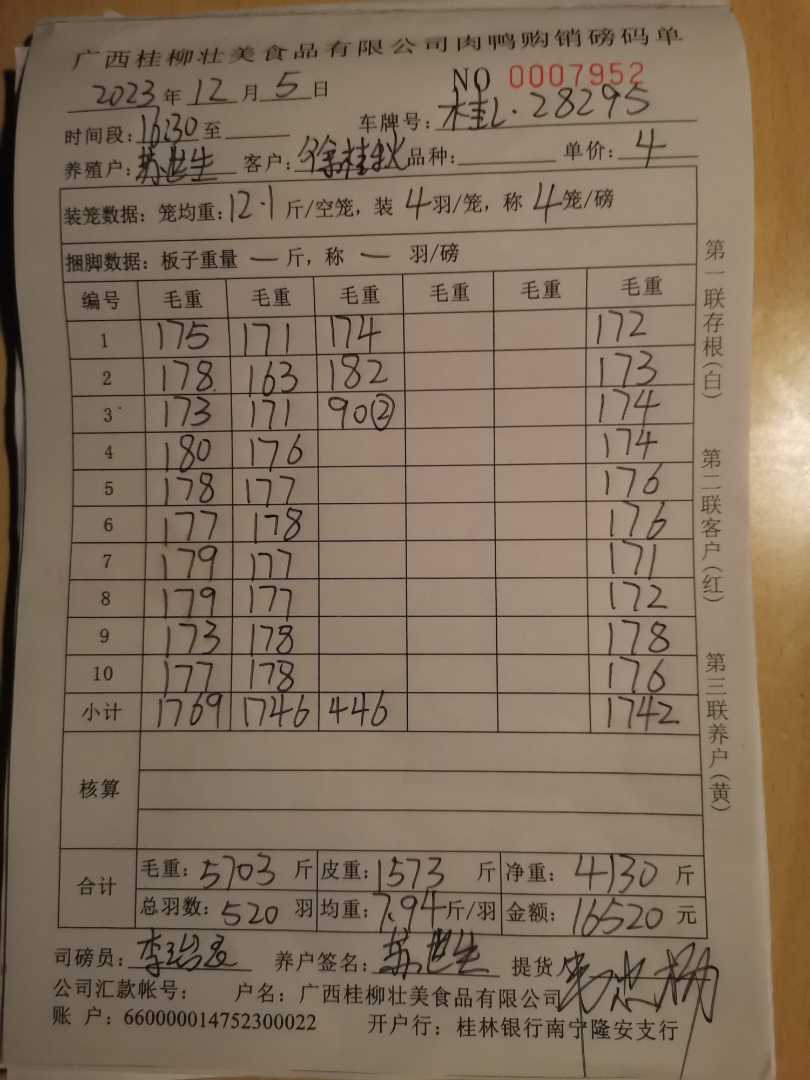 广西桂柳壮美食品有限公司肉鸭购销磅码单
2023年12月5日 NO 0007952
时间段:1630至 车牌号:桂L·28295
养殖户:苏世生 客户:徐桂秋 品种: 单价:4
装笼数据:笼均重:12.1斤/空笼,装4羽/笼,称4笼/磅
捆脚数据:板子重量一斤,称一羽/磅
编号 毛重 毛重 毛重 毛重 毛重 毛重
1 175 171 174 172
2 178 163 182 173
3 173 171 90② 174
4 180 176 174
5 178 177 176
6 177 178 176
7 179 177 171
8 179 177 172
9 173 178 178
10 177 178 176
小计 1769 1746 446 1742
核算
合计 毛重:5703斤 皮重:1573斤 净重:4130斤
总羽数:520羽 均重:7.94斤/羽 金额:16520元
司磅员: 养户签名:苏世生 提货人
公司汇款帐号: 户名:广西桂柳壮美食品有限公司
账 户:660000014752300022 开户行:桂林银行南宁隆安支行
第一联存根(白) 第二联客户(红) 第三联养户(黄)